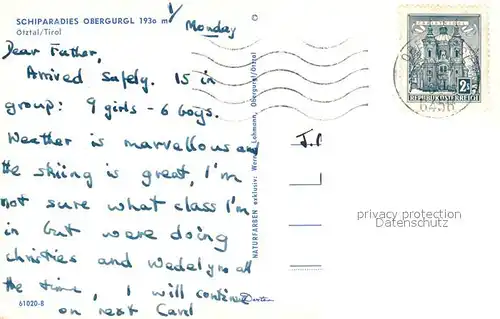 SCHIPARADIES OBERGURGL 1930 m
Ötztal/Tirol
1/
Monday
Dear Father,
Arrived safely. 15 in
group: 9 girls - 6 boys.
Weather is marvellous and
the skiing is great, I'm
not sure what class I'm
in but were doing
christies and Wedelyn all
the time, I will continue
on next Card
61020-B
NATURFARBEN exklusiv: Werner Lohmann, Obergurgl/Ötztal
J.P
REPUBLIK ÖSTERREICH
6456
privacy protection
Datenschutz